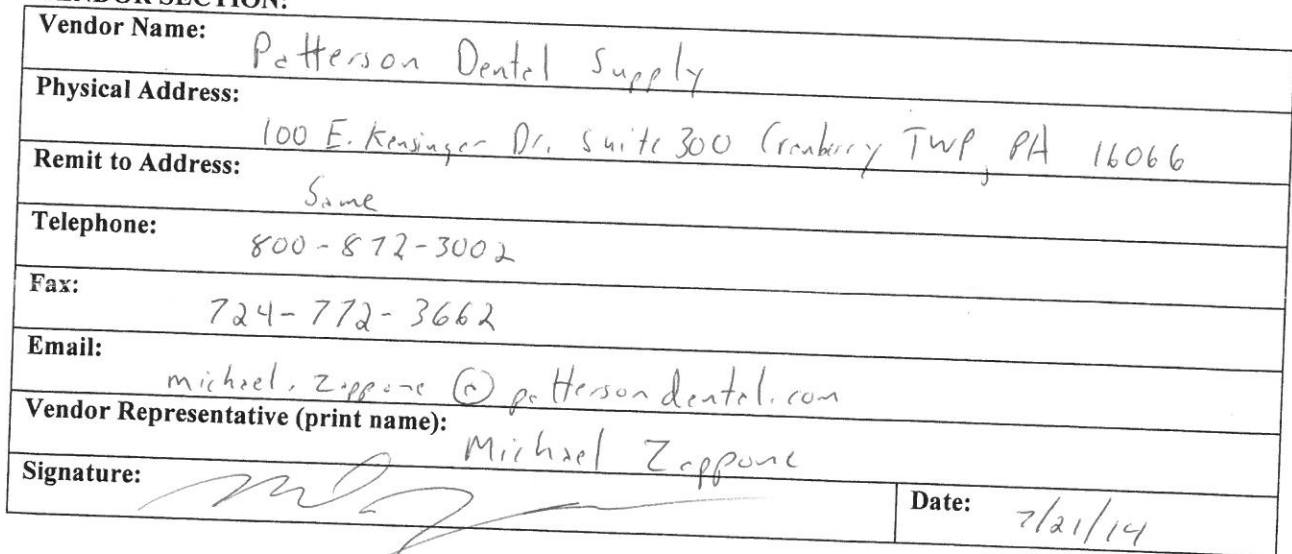 VENDOR SECTION:
Vendor Name: Patterson Dental Supply
Physical Address:
100 E. Kensinger Dr. Suite 300 Cranberry TWP, PA 16066
Remit to Address:
Same
Telephone:
800-872-3002
Fax:
724-772-3662
Email:
michael.zappone@pattersondental.com
Vendor Representative (print name): Michael Zappone
Signature:
Date: 7/21/14